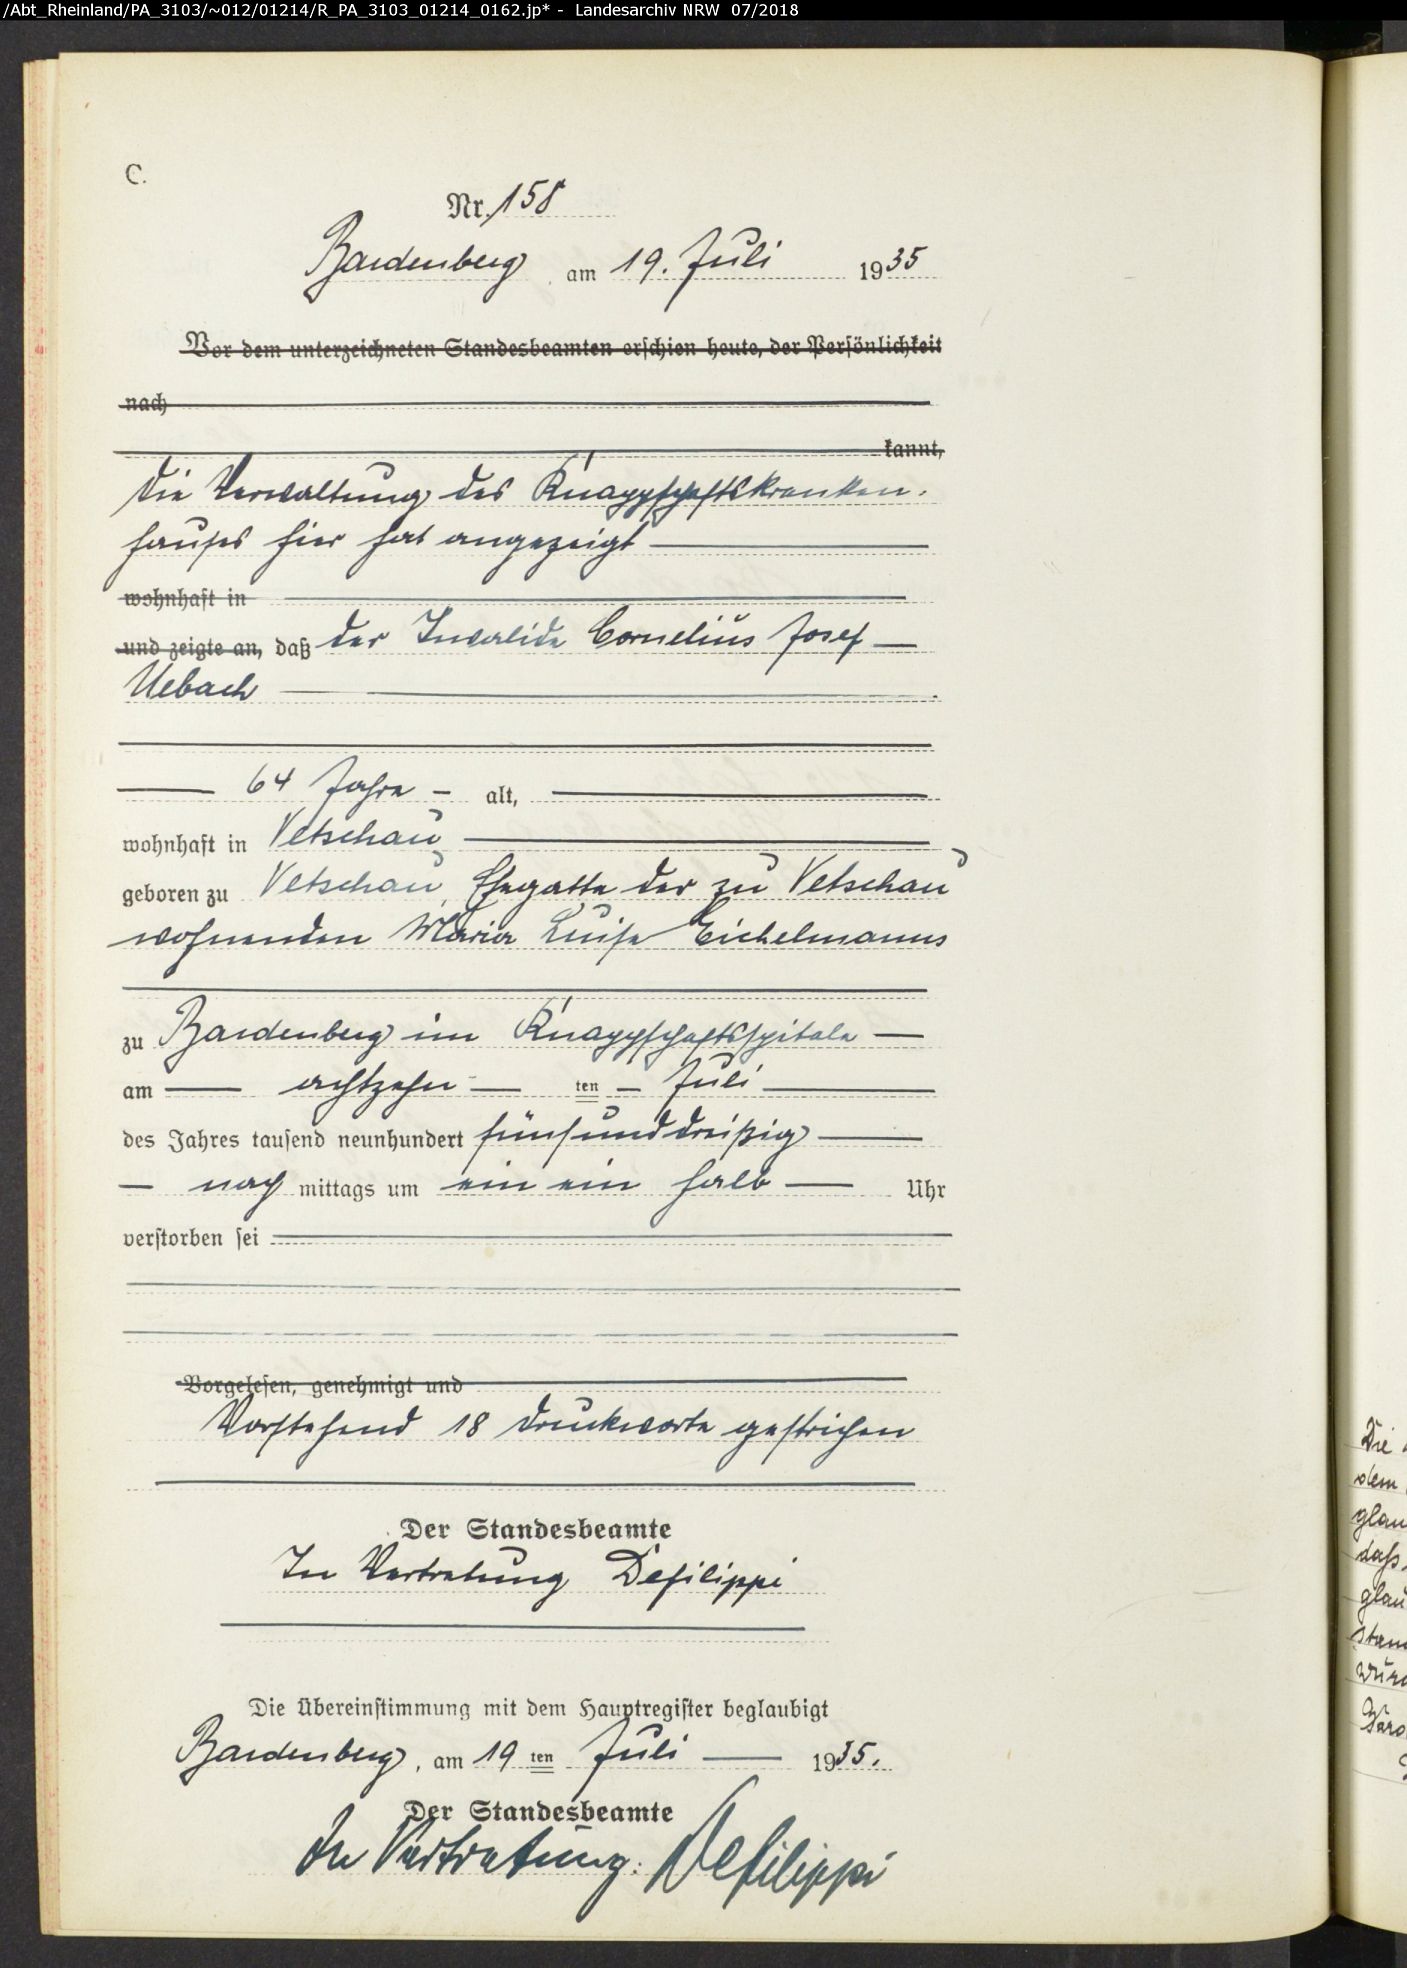 /Abt_Rheinland/PA_3103/~012/01214/R_PA_3103_01214_0162.jp* - Landesarchiv NRW 07/2018
C.
Nr. 158
Bardenberg am 19. Juli 1935
Vor dem unterzeichneten Standesbeamten erschien heute, der Persönlichkeit
nach
kannt,
die Verwaltung des Knappschaftskranken-
hauses hier hat angezeigt
wohnhaft in
und zeigte an, daß der Invalide Cornelius Josef
Uebach
64 Jahre alt,
wohnhaft in Vetschau
geboren zu Vetschau, Ehegatte der zu Vetschau
wohnenden Maria Luise Eichelmanns
zu Bardenberg im Knappschaftsspitale
am achtzehn ten Juli
des Jahres tausend neunhundert fünfunddreißig
nach mittags um ein ein halb Uhr
verstorben sei
Vorgelesen, genehmigt und
Vorstehend 18 Druckworte gestrichen
Der Standesbeamte
In Vertretung Defilippi
Die Übereinstimmung mit dem Hauptregister beglaubigt
Bardenberg, am 19 ten Juli 1935.
Der Standesbeamte
In Vertretung: Defilippi
Die
dem
daß